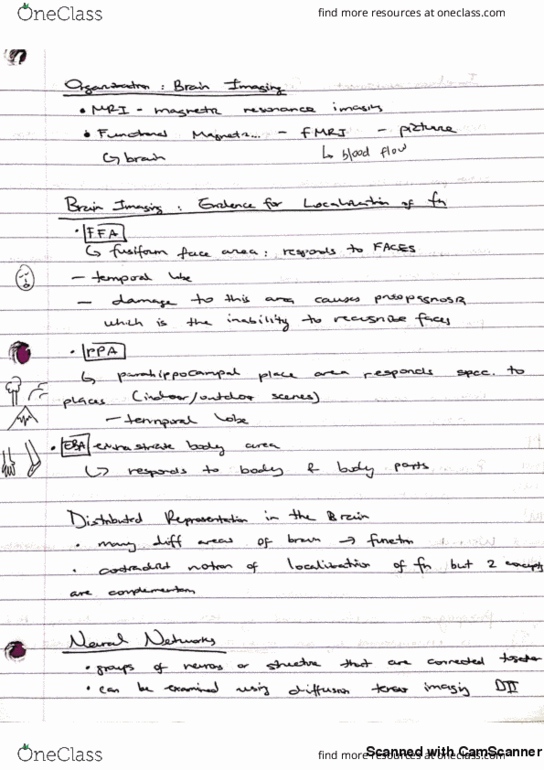 OneClass find more resources at oneclass.com
Organization : Brain Imaging
• MRI - magnetic resonance imaging
• Functional Magnetic... - fMRI - picture
↳ brain ↳ blood flow
Brain Imaging : Evidence for Localization of fn
• FFA
↳ fusiform face area : responds to FACES
- temporal lobe
- damage to this area causes prosopagnosia
which is the inability to recognize faces
• PPA
↳ parahippocampal place area responds spec. to
places (indoor/outdoor scenes)
- temporal lobe
• EBA extrastriate body area
↳ responds to body & body parts
Distributed Representation in the Brain
• many diff areas of brain → function
• contradict notion of localization of fn but 2 concepts
are complementary
Neural Networks
• groups of neurons or structure that are connected together
• can be examined using diffusion tensor imaging DTI
OneClass find more resources at oneclass.com
Scanned with CamScanner